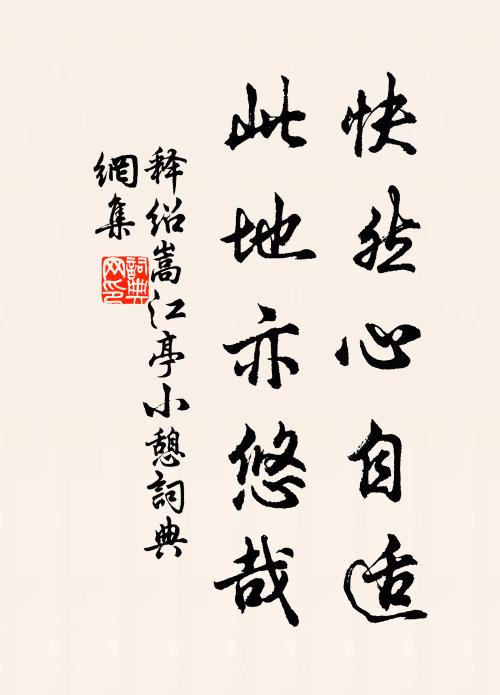 快然心自适
此地亦悠哉
释绍嵩江亭小憩詞典
網集
詞典網印